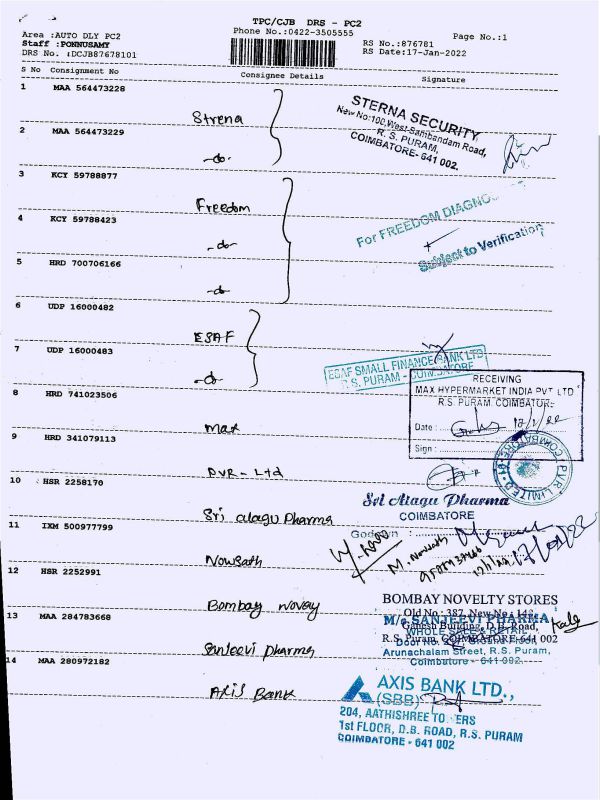 TPC/CJB DRS - PC2
Area :AUTO DLY PC2
Phone No.:0422-3505555
Page No.:1
Staff :PONNUSAMY
RS No.:876781
DRS No. :DCJB87678101
RS Date:17-Jan-2022
S No Consignment No
Consignee Details
Signature
1 MAA 564473228
Strena
STERNA SECURITY
New No:100,West Sambandam Road,
R. S. PURAM,
COIMBATORE- 641 002.
2 MAA 564473229
-do-
3 KCY 59788877
Freedom
For FREEDOM
4 KCY 59788423
-do-
Subject to Verification
5 HRD 700706166
-do-
6 UDP 16000482
ESAF
7 UDP 16000483
-do-
ESAF SMALL FINANCE BANK LTD
R.S. PURAM - COIMBATORE
8 HRD 741023506
max
RECEIVING
MAX HYPERMARKET INDIA PVT LTD
R.S. PURAM COIMBATORE
Date :
Sign :
9 HRD 341079113
PVR - Ltd
PVR LIMITED
COIMBATORE
10 HSR 2258170
Sri alagu Pharma
Sri Alagu Pharma
COIMBATORE
11 IXM 500977799
Nowsath
M. Nowsath
12 HSR 2252991
Bombay Novay
BOMBAY NOVELTY STORES
Old No: 387, New No: 148,
Ganesh Building, D.B. Road,
R.S. Puram, COIMBATORE-641 002
13 MAA 284783668
Sanjeevi pharma
M/s SANJEEVI PHARMA
WHOLE SALE & RETAIL
Arunachalam Street, R.S. Puram,
Coimbatore - 641 002.
14 MAA 280972182
Axis Bank
AXIS BANK LTD.,
(SBB)
204, AATHISHREE TO ERS
1st FLOOR, D.B. ROAD, R.S. PURAM
COIMBATORE - 641 002